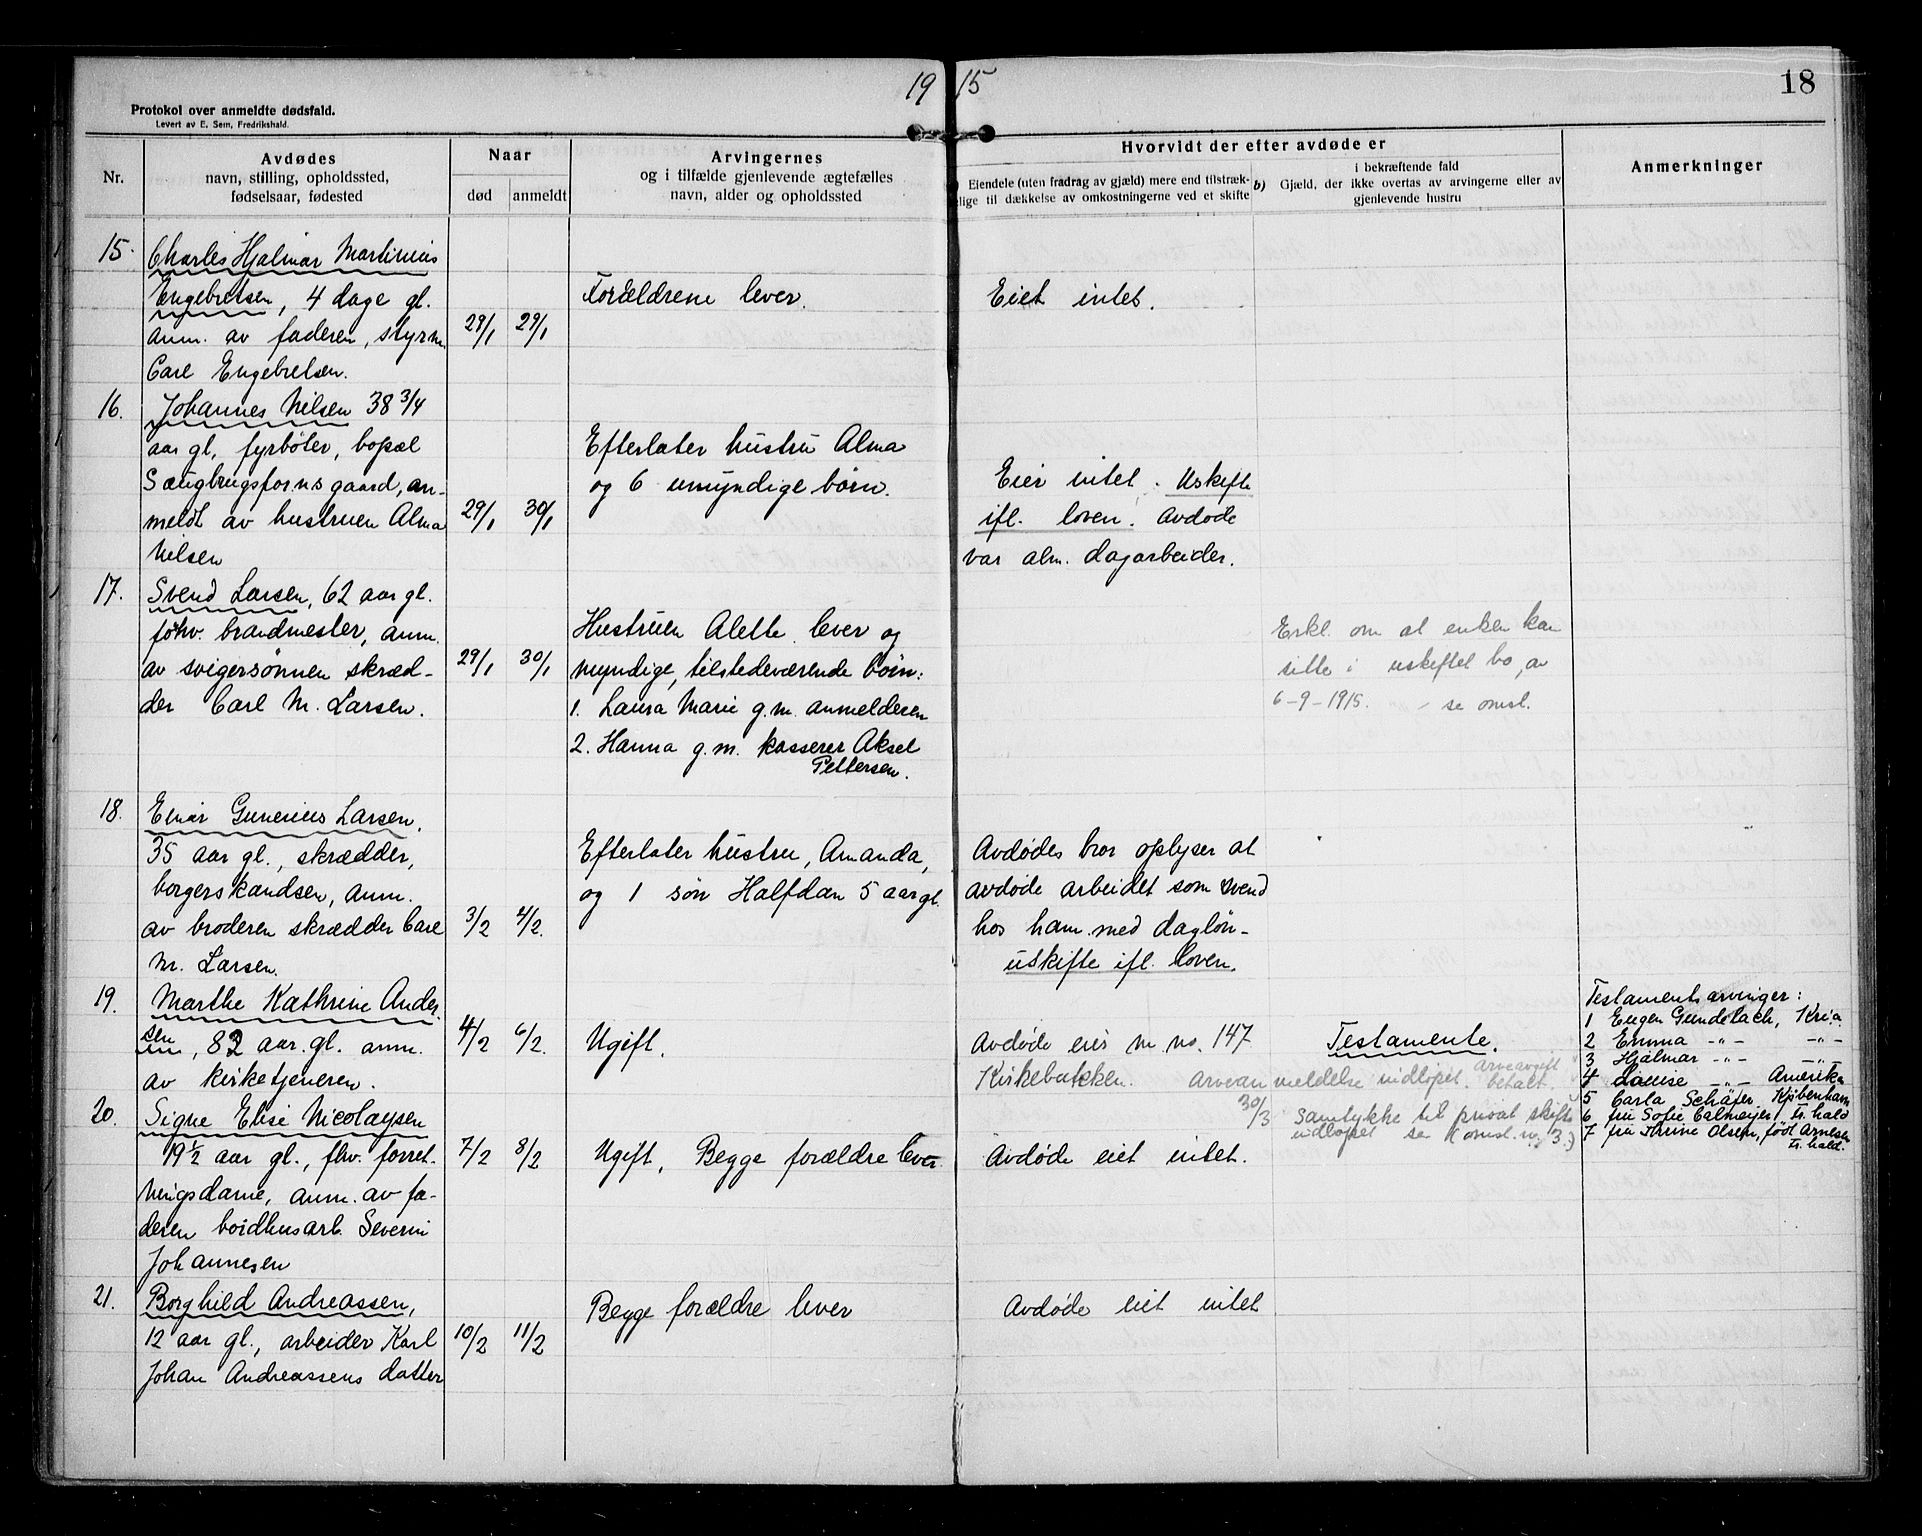 19 15
18
Protokol over anmeldte dødsfald.
Levert av E. Sem, Fredrikshald.
Nr.
Avdødes
navn, stilling, opholdssted,
fødselsaar, fødested
Naar
død
anmeldt
Arvingernes
og i tilfælde gjenlevende ægtefælles
navn, alder og opholdssted
Hvorvidt der efter avdøde er
Eiendele (uten fradrag av gjæld) mere end tilstræk-
lige til dækkelse av omkostningerne ved et skifte
b)
i bekræftende fald
Gjæld, der ikke overtas av arvingerne eller av
gjenlevende hustru
Anmerkninger
15.
Charles Hjalmar Martinius
Engebretsen, 4 dage gl.
anm. av faderen, styrm.
Carl Engebretsen.
29/1 29/1
Forældrene lever.
Eiet intet.
16.
Johannes Nilsen 38 3/4
aar gl, fyrbøter, bopæl
Saugbrugsfor.ns gaard, an-
meldt av hustruen Alma
Nilsen
29/1 30/1
Efterlater hustru Alma
og 6 umyndige børn.
Eier intet. Uskifte
ifl. loven. Avdøde
var alm. dagarbeider.
17.
Svend Larsen, 62 aar gl.
fhv. brandmester, anm.
av svigersønnen skræd-
der Carl M. Larsen.
29/1 30/1
Hustruen Alette lever og
myndige, tilstedeværende børn:
1. Laura Marie g.m. anmelderen
2. Hanna g.m. kasserer Aksel
Pettersen.
Erkl. om at enken kan
sitte i uskiftet bo, av
6-9-1915. - se omsl.
18.
Einar Gunerius Larsen,
35 aar gl., skrædder,
borgerskandsen, anm.
av broderen skrædder Carl
M. Larsen.
3/2 4/2.
Efterlater hustru, Amanda,
og 1 søn Halfdan 5 aar gl.
Avdødes bror oplyser at
avdøde arbeidet som svend
hos ham med dagløn-
uskifte ifl. loven.
19.
Marthe Kathrine Ander
sen, 82 aar. gl. anm.
av kirketjeneren.
4/2 6/2.
Ugift.
Avdøde eier m. no. 147
Kirkebakken.
Testamente.
Arveanmeldelse indløpet. Arveavgift
betalt.
30/3 Samtykke til privat skifte
indløpet se omsl. n. 3.)
Testamentsarvinger:
1 Eugen Gundelach, Kria.
2 Emma -"- -"-
3 Hjalmar -"- -"-
4 Louise -"- Amerika
5 Carla Schäfer Kjøbenhavn
6 fru Sofie Calmeijer, Fr.hald
7 fru Thrine Olsen, født Arnesen
Fr.hald.
20.
Signe Elise Nicolaysen
19 1/2 aar gl., fhv. forret-
ningsdame, anm. av fa-
deren boidhusarb. Severin
Johannesen
7/2 8/2
Ugift. Begge forældre lever.
Avdøde eiet intet.
21.
Borghild Andreassen,
12 aar gl., arbeider Karl
Johan Andreassens datter
10/2 11/2
Begge forældre lever
Avdøde eiet intet